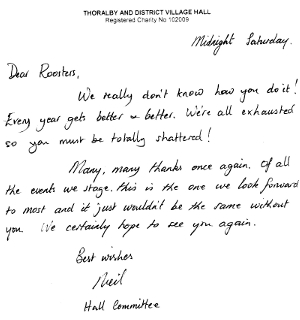 THORALBY AND DISTRICT VILLAGE HALL
Registered Charity No 102009
Midnight Saturday.
Dear Roosters,
We really don't know how you do it!
Every year gets better & better. We're all exhausted
so you must be totally shattered!
Many, many thanks once again. Of all
the events we stage, this is the one we look forward
to most and it just wouldn't be the same without
you. We certainly hope to see you again.
Best wishes
Neil
Hall Committee